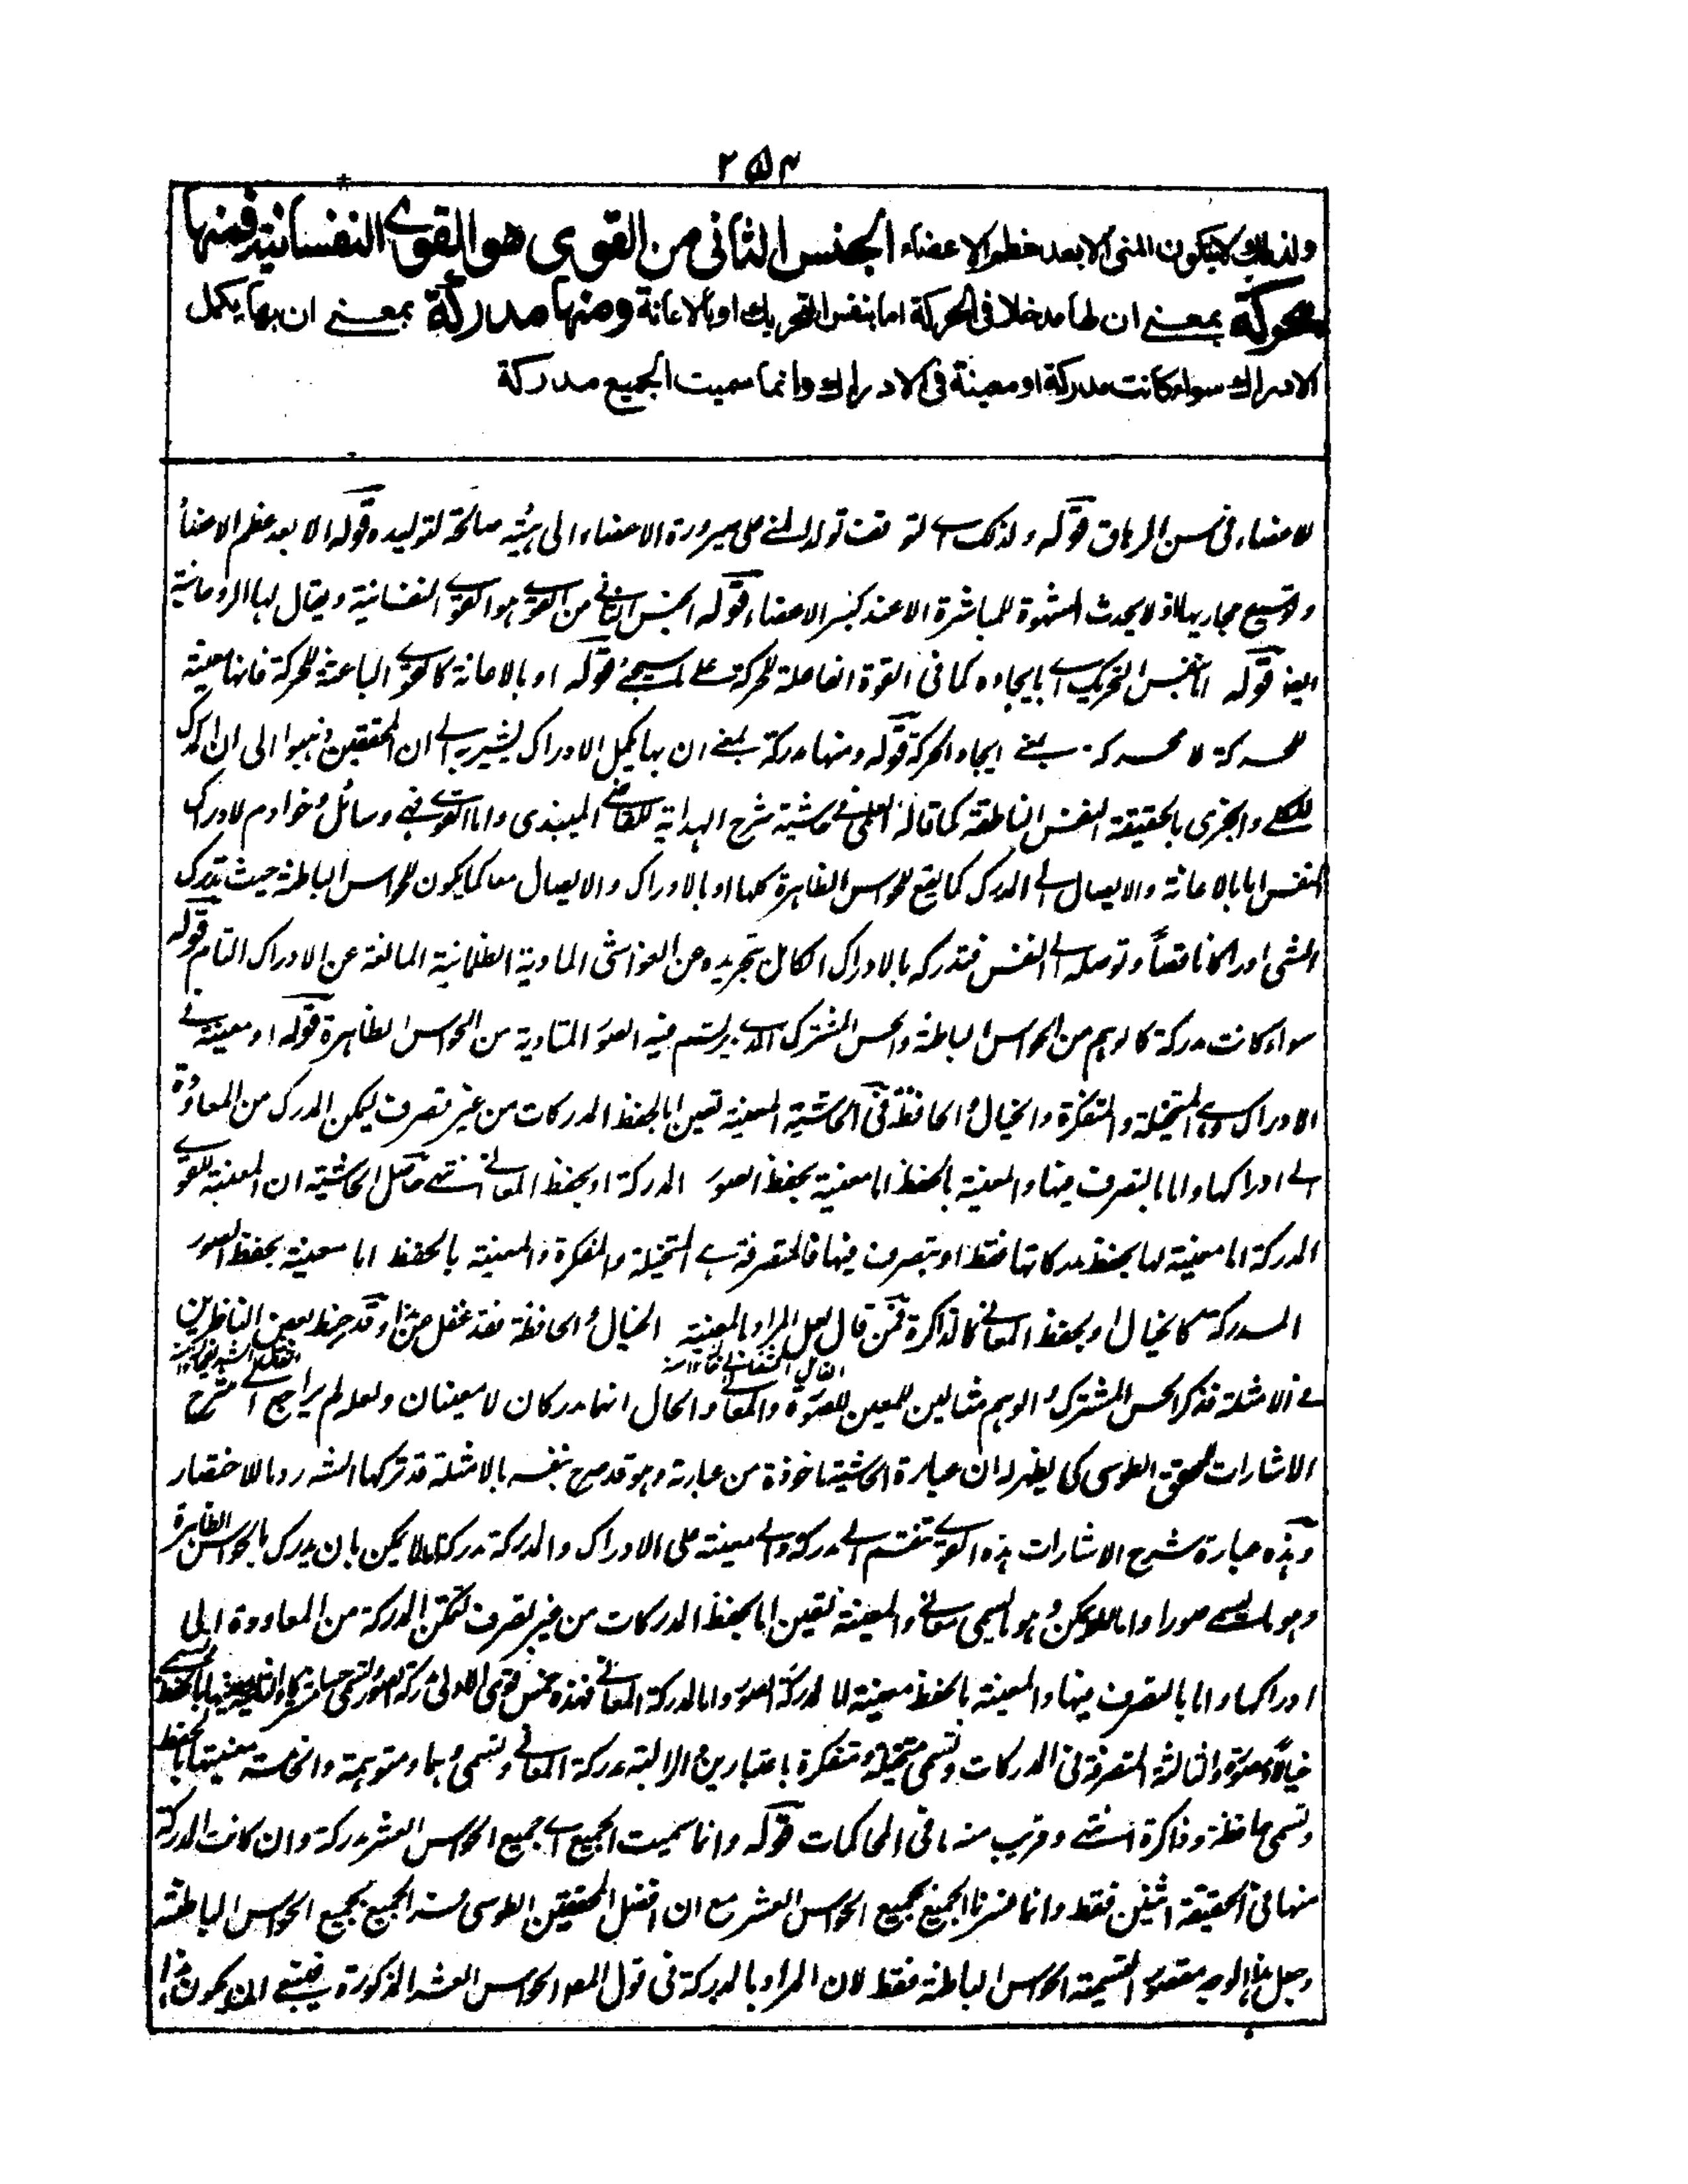 ۲۵۴
ولذلك لا يتكون المنى الا بعد عظم الاعضاء الجنس الثانى من القوى هو القوى النفسانية فمنها
محركة بمعنى ان لها مدخلا فى الحركة اما بنفس التحريك او بالاعانة ومنها مدركة بمعنى ان بها يكمل
الادراك سواء كانت مدركة او معينة فى الادراك وانما سميت الجميع مدركة
لاعضاء فى سن المراهق قوله ولذلك اى لتوقف تولد المنى على صيرورة الاعضاء الى هيئة صالحة لتوليده قوله الا بعد عظم الاعضاء
وتوسيع مجاريها اذ لا يحدث الشهوة للمباشرة الا عند كبر الاعضاء قوله الجنس الثانى من القوى هو القوى النفسانية ويقال لها الروحانية
ايضا قوله اما بنفس التحريك اى بايجاده كما فى القوة الفاعلة للحركة على ما سيجئ قوله او بالاعانة كالقوى الباعثة للحركة فانها معينة
للحركة لا محركة بمعنى ايجاد الحركة قوله ومنها مدركة بمعنى ان بها يكمل الادراك يشير به الى ان المحققين ذهبوا الى ان المدرك
للكلى والجزى بالحقيقة النفس الناطقة كما قاله العلمى فى حاشية شرح الهداية للقاضى الميبذى واما القوى فهى وسائل وخوادم لادراك
النفس اما بالاعانة والايصال الى المدرك كما يقع للحواس الظاهرة كلها او بالادراك والايصال معا كما يكون للحواس الباطنة حيث تدرك
الشى ادراكا ناقصاً وتوصله الى النفس فتدركه بالادراك الكامل بتجريده عن الغواشى المادية الظلمانية المانعة عن الادراك التام قوله
سواء كانت مدركة كالوهم من الحواس الباطنة والحس المشترك الذى يرتسم فيه الصور المتادية من الحواس الظاهرة قوله او معينة فى
الادراك وهى المتخيلة والمتفكرة والخيال والحافظة فى الحاشية المعينة تعين اما بحفظ المدركات من غير تصرف ليمكن المدرك من المعاودة
الى ادراكها واما بالتصرف فيها والمعينة بالحفظ اما معينة بحفظ الصور المدركة او بحفظ المعانى انتهى حاصل الحاشية ان المعينة للقوى
المدركة اما معينة لها بحفظ مدركاتها فقط او بتصرف فيها فالمتصرفة هى المتخيلة والمفكرة والمعينة بالحفظ اما معينة بحفظ الصور
المدركة كالخيال او بحفظ المعانى كالذاكرة فمن قال لعل المراد بالمعينة الخيال والحافظة فقد غفل عن هذا وقد خبط بعض الناظرين
فى الامثلة فذكر الحس المشترك والوهم مثالين للمعين للصورة والمعانى والحال انهما مدركان لا معينان ولعله لم يراجع الى شرح
الاشارات للمحقق الطوسى كى يظهر له ان عبارة الحاشية ماخوذة من عبارته وهو قد صرح بنفسه بالامثلة قد تركها الشه روما للاختصار
وهذه عبارة شرح الاشارات هذه القوى تنقسم الى مدركة والى معينة على الادراك والمدركة مدركة اما لما يمكن بان يدرك بالحواس الظاهرة
وهو ما يسمى صورا واما لما لا يمكن وهو ما يسمى معانى والمعينة تعين اما بحفظ المدركات من غير تصرف لتمكن المدركة من المعاودة الى
ادراكها واما بالتصرف فيها والمعينة بالحفظ معينة اما لمدركة الصور واما لمدركة المعانى فهذه خمس قوى الاولى مدركة الصور وتسمى حسا مشتركا والثانية معينتها بالحفظ وتسمى
خيالا ومصورة والثالثة المتصرفة فى المدركات وتسمى متخيلة ومتفكرة باعتبارين والرابعة مدركة المعانى وتسمى وهما ومتوهمة والخامسة معينتها بالحفظ
وتسمى حافظة وذاكرة انتهى وقريب منه ما فى المحاكمات قوله وانما سميت الجميع اى جميع الحواس العشر مدركة وان كانت المدركة
منها فى الحقيقة اثنين فقط وانما فسرنا الجميع بجميع الحواس العشر مع ان افضل المحققين الطوسى فسر الجميع بجميع الحواس الباطنة
وجعل هذا الوجه مقصود التسمية الحواس الباطنة فقط لان المراد بالمدركة فى قول المص الحواس العشر المذكورة فينبغى ان يكون هذا